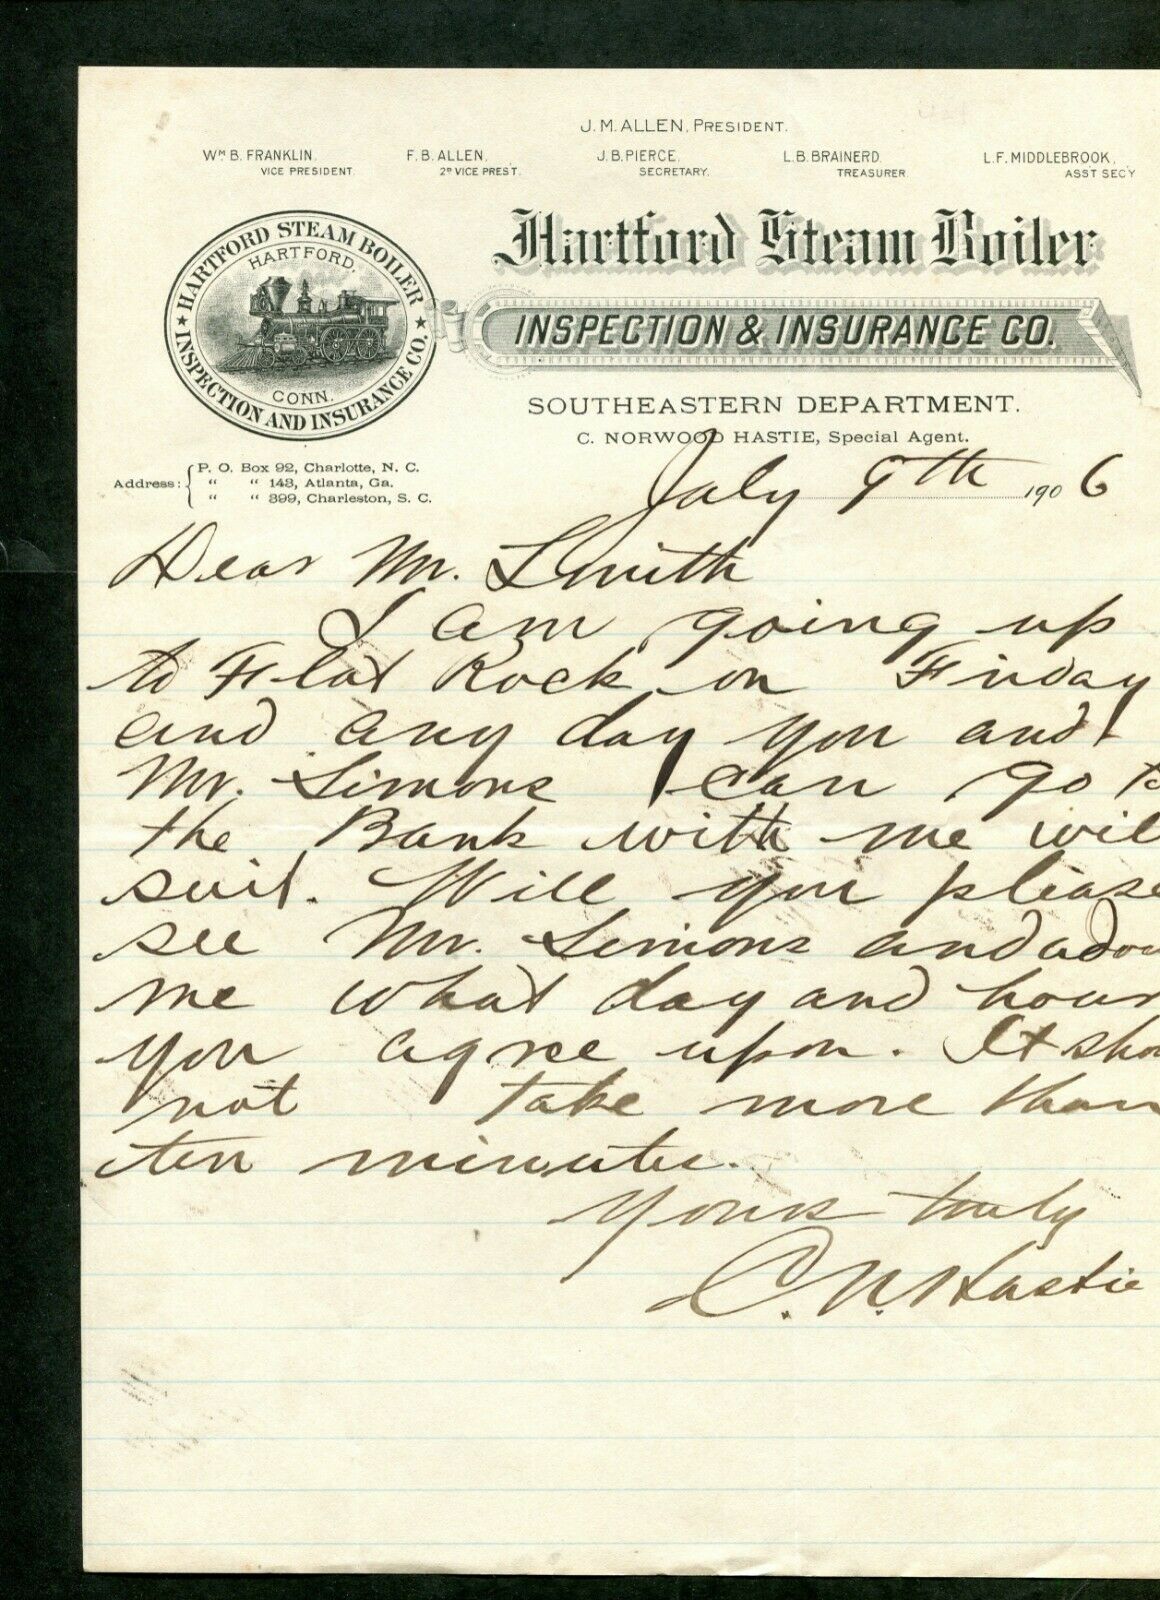 J. M. ALLEN, PRESIDENT.
WM B. FRANKLIN, VICE PRESIDENT.
F. B. ALLEN, 2D VICE PREST.
J. B. PIERCE, SECRETARY.
L. B. BRAINERD, TREASURER.
L. F. MIDDLEBROOK, ASST SEC'Y
Hartford Steam Boiler
INSPECTION & INSURANCE CO.
HARTFORD STEAM BOILER
INSPECTION AND INSURANCE CO.
HARTFORD,
CONN.
SOUTHEASTERN DEPARTMENT.
C. NORWOOD HASTIE, Special Agent.
Address: P. O. Box 92, Charlotte, N. C.
" " 143, Atlanta, Ga.
" " 399, Charleston, S. C.
July 9th 1906
Dear Mr. Smith
I am going up
to Flat Rock on Friday
and any day you and
Mr. Simons can go to
the Bank with me wil
suit. Will you please
see Mr. Simons and
me what day and hour
you agree upon. It shou
not take more than
ten minutes.
Yours truly
C. N. Hastie